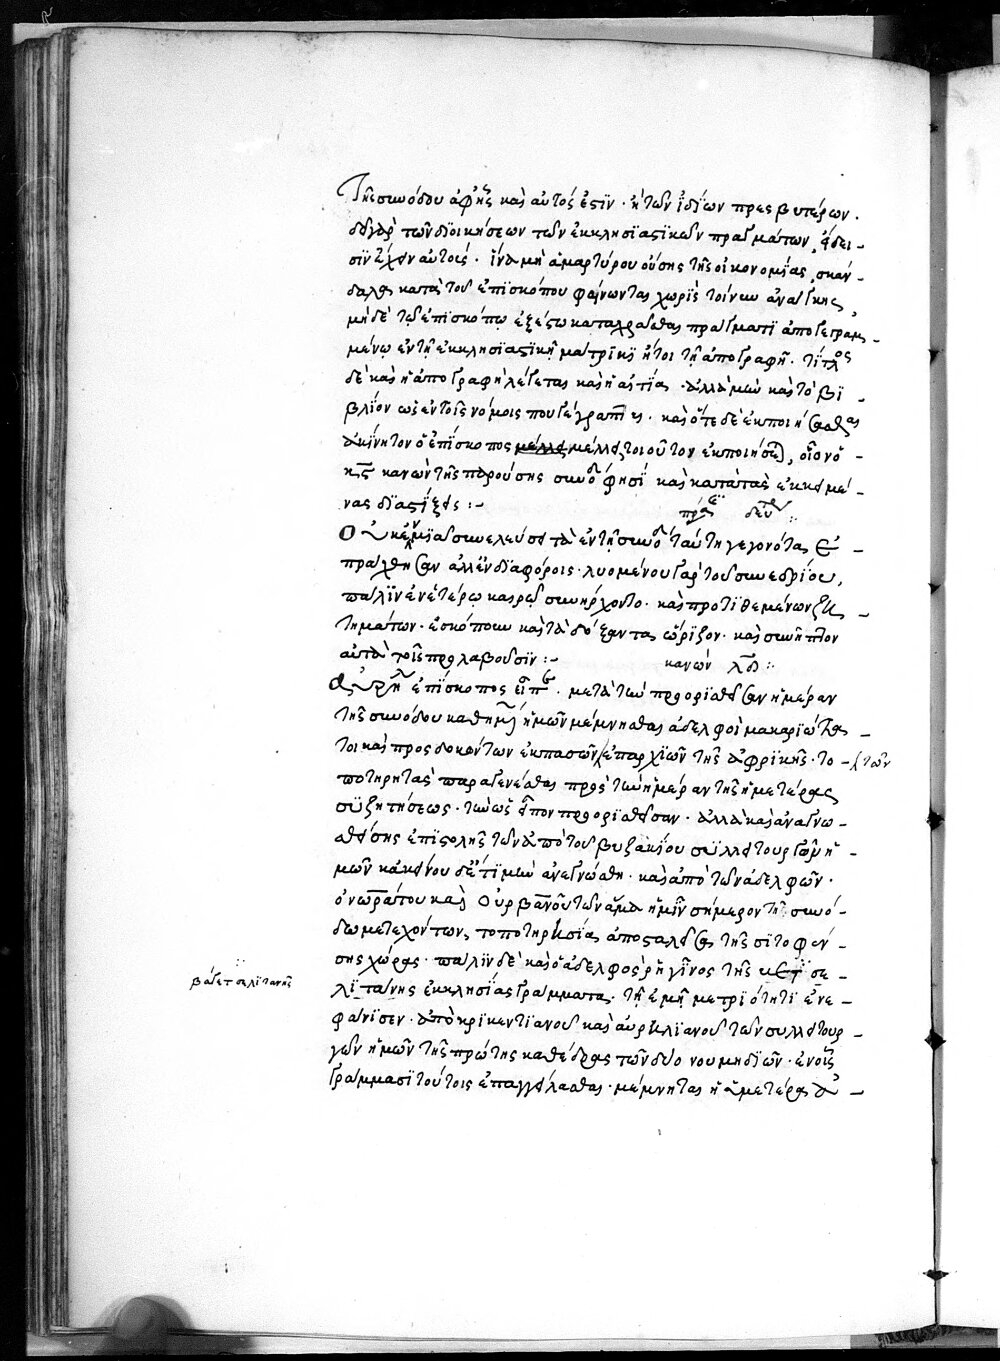 Τῆς συνόδου ἀφῆς καὶ αὐτός ἐστϊν · ἢ τῶν ἰδίων πρεσβυτέρων ·
διοικήσεων τῶν ἐκκλησϊαστϊκῶν πραγμάτων
αὐτοῖς · ἵνα μὴ ἀμαρτύρου οὔσης τῆς οἰκονομίας, σκαν
κατὰ τοῦ ἐπϊσκόπου φαίνωνται χωρὶς τοίνυν ἀνάγκης
μηδὲ τῷ ἐπϊσκόπῳ ἐξέστω καταχρᾶσθαι πράγματϊ ἀπογεγραμ
μένῳ ἐν τῇ ἐκκλησϊαστϊκῇ ματρίκϊ ἤτοι τῇ ἀπογραφῇ · τίτλος
δὲ καὶ ἡ ἀπογραφὴ λέγεται καὶ ἡ αἰτία · ἀλλὰ μὴν καὶ τὸ βϊ
βλίον ὡς ἐν τοῖς νόμοις που γέγραπται · καὶ ὅτε δὲ ἐκποιήσασθαι
ἀκίνητον ὁ ἐπίσκοπος μέλλει τοιοῦτον ἐκποιήσει, οἷον ὁ
κϛ κανὼν τῆς παρούσης συνόδ φησὶ καὶ κατὰ τὰς ἐκκειμέ
νας δϊαστίξεις :-
πράξις δευτ :
Οὐκ ἐν μϊᾷ συνελεύσει τὰ ἐν τῇ συνόδ ταύτῃ γεγονότα
πράχθησαν ἀλλ' ἐν δϊαφόροις · λυομένου γὰρ τοῦ συνεδρίου,
πάλϊν ἐν ἑτέρῳ καιρῷ συνήρχοντο · καὶ προτϊθεμένων ζη
τημάτων · ἐσκόπουν καὶ τὰ δόξαντα ὥρϊζον · καὶ συνῆπτον
αὐτὰ τοῖς προλαβοῦσϊν :-
κανών λδ :
Αὐρήλ ἐπίσκοπος εἶπεν · μετὰ τὴν προορϊσθεῖσαν ἡμέραν
τῆς συνόδου καθημ ἡμῶν μέμνησθαι ἀδελφοὶ μακαρϊώτατοι
τοι καὶ προσδοκώντων ἐκ πασῶν ἐπαρχϊῶν τῆς ἀφρϊκῆς · το (τῶν
ποτηρητὰς παραγενέσθαι πρὸς τὴν ἡμέραν τῆς ἡμετέρας
συζητήσεως · τὴν ὡς εἶπον προορϊσθεῖσαν · ἀλλὰ καὶ ἀναγνω
σθείσης ἐπϊστολῆς τῶν ἀπὸ τοῦ βυζακίου συλλειτουργῶν ἡ
μῶν κἀκείνου δὲ ἔτϊ μὴν ἀνεγνώσθη · καὶ ἀπὸ τῶν ἀδελφῶν ·
ὁνωράτου καὶ Οὐρβανοῦ τῶν ἅμα ἡμῖν σήμερον τῇ συνό
δῳ μετεχόντων, τοποτηρησία ἀποσταλεῖσα τῆς σϊτοφεν
σης χώρας · πάλϊν δὲ καὶ ὁ ἀδελφὸς ῥηγῖνος τῆς σε
λϊτάνης ἐκκλησίας γράμματα τῇ ἐμῇ μετρϊότητϊ ἐνε
φάνϊσεν · ἀπὸ κρϊκεντϊανοῦ καὶ αὐρηλϊανοῦ τῶν συλλειτουρ
γῶν ἡμῶν τῆς πρώτης καθέδρας τῶν δύο νουμηδϊῶν · ἐν οἷς
γράμμασϊ τούτοις ἐπαγγείλασθαι · μέμνηται ἡ ὑμετέρα
βάγετ σελϊτανῆς